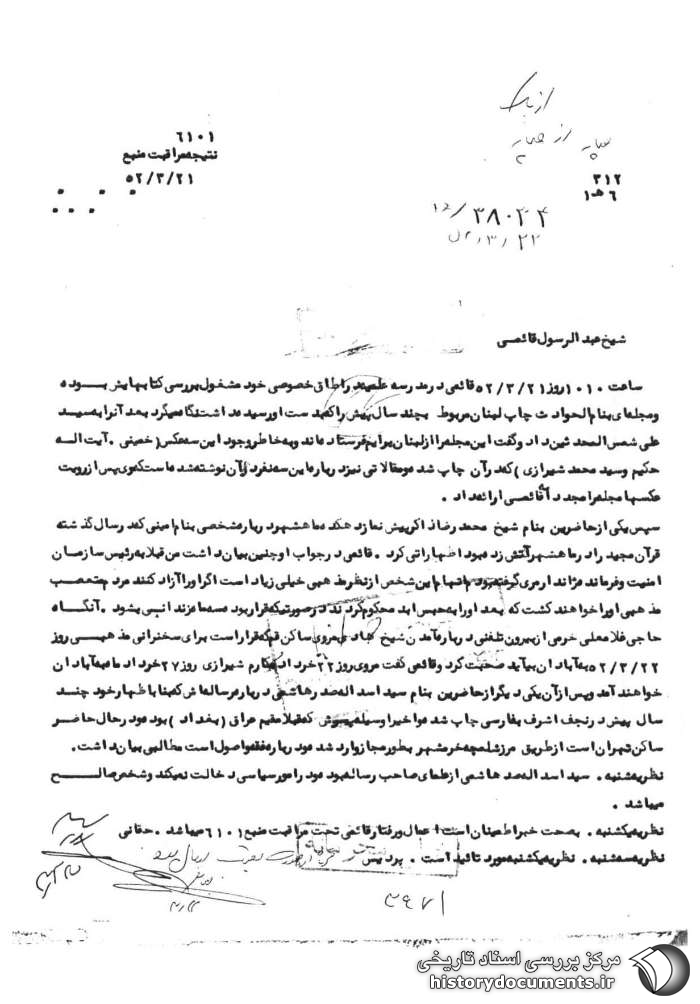 از
۶۱۰۱
نتیجه مراقبت منبع
۵۲/۳/۲۱
۳۱۲
۱ه‍ ۶
۱۲/۳۸۰۲۴
شیخ عبدالرسول قائمی
ساعت ۱۰۱۰ روز ۵۲/۳/۲۱ قائمی در مدرسه علمیه در اطاق خصوصی خود مشغول بررسی کتابهایش بوده
و مجله‌ای بنام الحوادث چاپ لبنان مربوط بچند سال پیش را که بدست او رسیده داشت نگاه میکرد بعد آنرا به سید
علی شمس المحدثین داد و گفت این مجله را از لبنان برایم فرستاده‌اند و به خاطر وجود این سه عکس (خمینی . آیت اله
حکیم و سید محمد شیرازی) که در آن چاپ شده و مقالاتی نیز درباره این سه نفر در آن نوشته شده است که وی پس از رویت
عکسها مجله را مجدداً به قائمی ارائه داد .
سپس یکی از حاضرین بنام شیخ محمد رضا ذاکر پیش نماز دهکده ماهشهر درباره شخصی بنام امینی که در سال گذشته
قرآن مجید را در ماهشهر آتش زده بود اظهاراتی کرد . قائمی در جواب او چنین بیان داشت من قبلا به رئیس سازمان
امنیت و فرمانده ژاندارمری گفته بودم اتهام این شخص از نظر مذهبی خیلی زیاد است اگر او را آزاد کنند مردم متعصب
مذهبی او را خواهند کشت که بعد او را به حبس ابد محکوم کردند در صورتیکه قرار بود سه ماه زندانی بشود . آنگاه
حاجی غلامعلی خرمی از بیرون تلفنی درباره آمدن شیخ مروی ساکن قم که قرار است برای سخنرانی مذهبی روز
۵۲/۳/۲۲ به آبادان بیاید صحبت کرد و قائمی گفت مروی روز ۲۲ خرداد مکارم شیرازی روز ۲۷ خرداد ماه به آبادان
خواهند آمد و پس از آن یکی دیگر از حاضرین بنام سید اسداله صدرهاشمی درباره رساله‌اش که بنا باظهار خود چند
سال پیش در نجف اشرف بفارسی چاپ شده و اخیرا وسیله پسرش که قبلا مقیم عراق (بغداد) بوده و در حال حاضر
ساکن تهران است از طریق مرز شلمچه خرمشهر بطور مجاز وارد شده و درباره فقه و اصول است مطالبی بیان داشت .
نظریه شنبه . سید اسداله صدرهاشمی از علمای صاحب رساله بوده و در امور سیاسی دخالت نمیکند و شخص صالح
میباشد .
نظریه یکشنبه . به صحت خبر اطمینان است اعمال و رفتار قائمی تحت مراقبت منبع ۶۱۰۱ میباشد . حقانی
نظریه سه شنبه . نظریه یکشنبه مورد تائید است . پردیس
مرکز بررسی اسناد تاریخی
historydocuments.ir